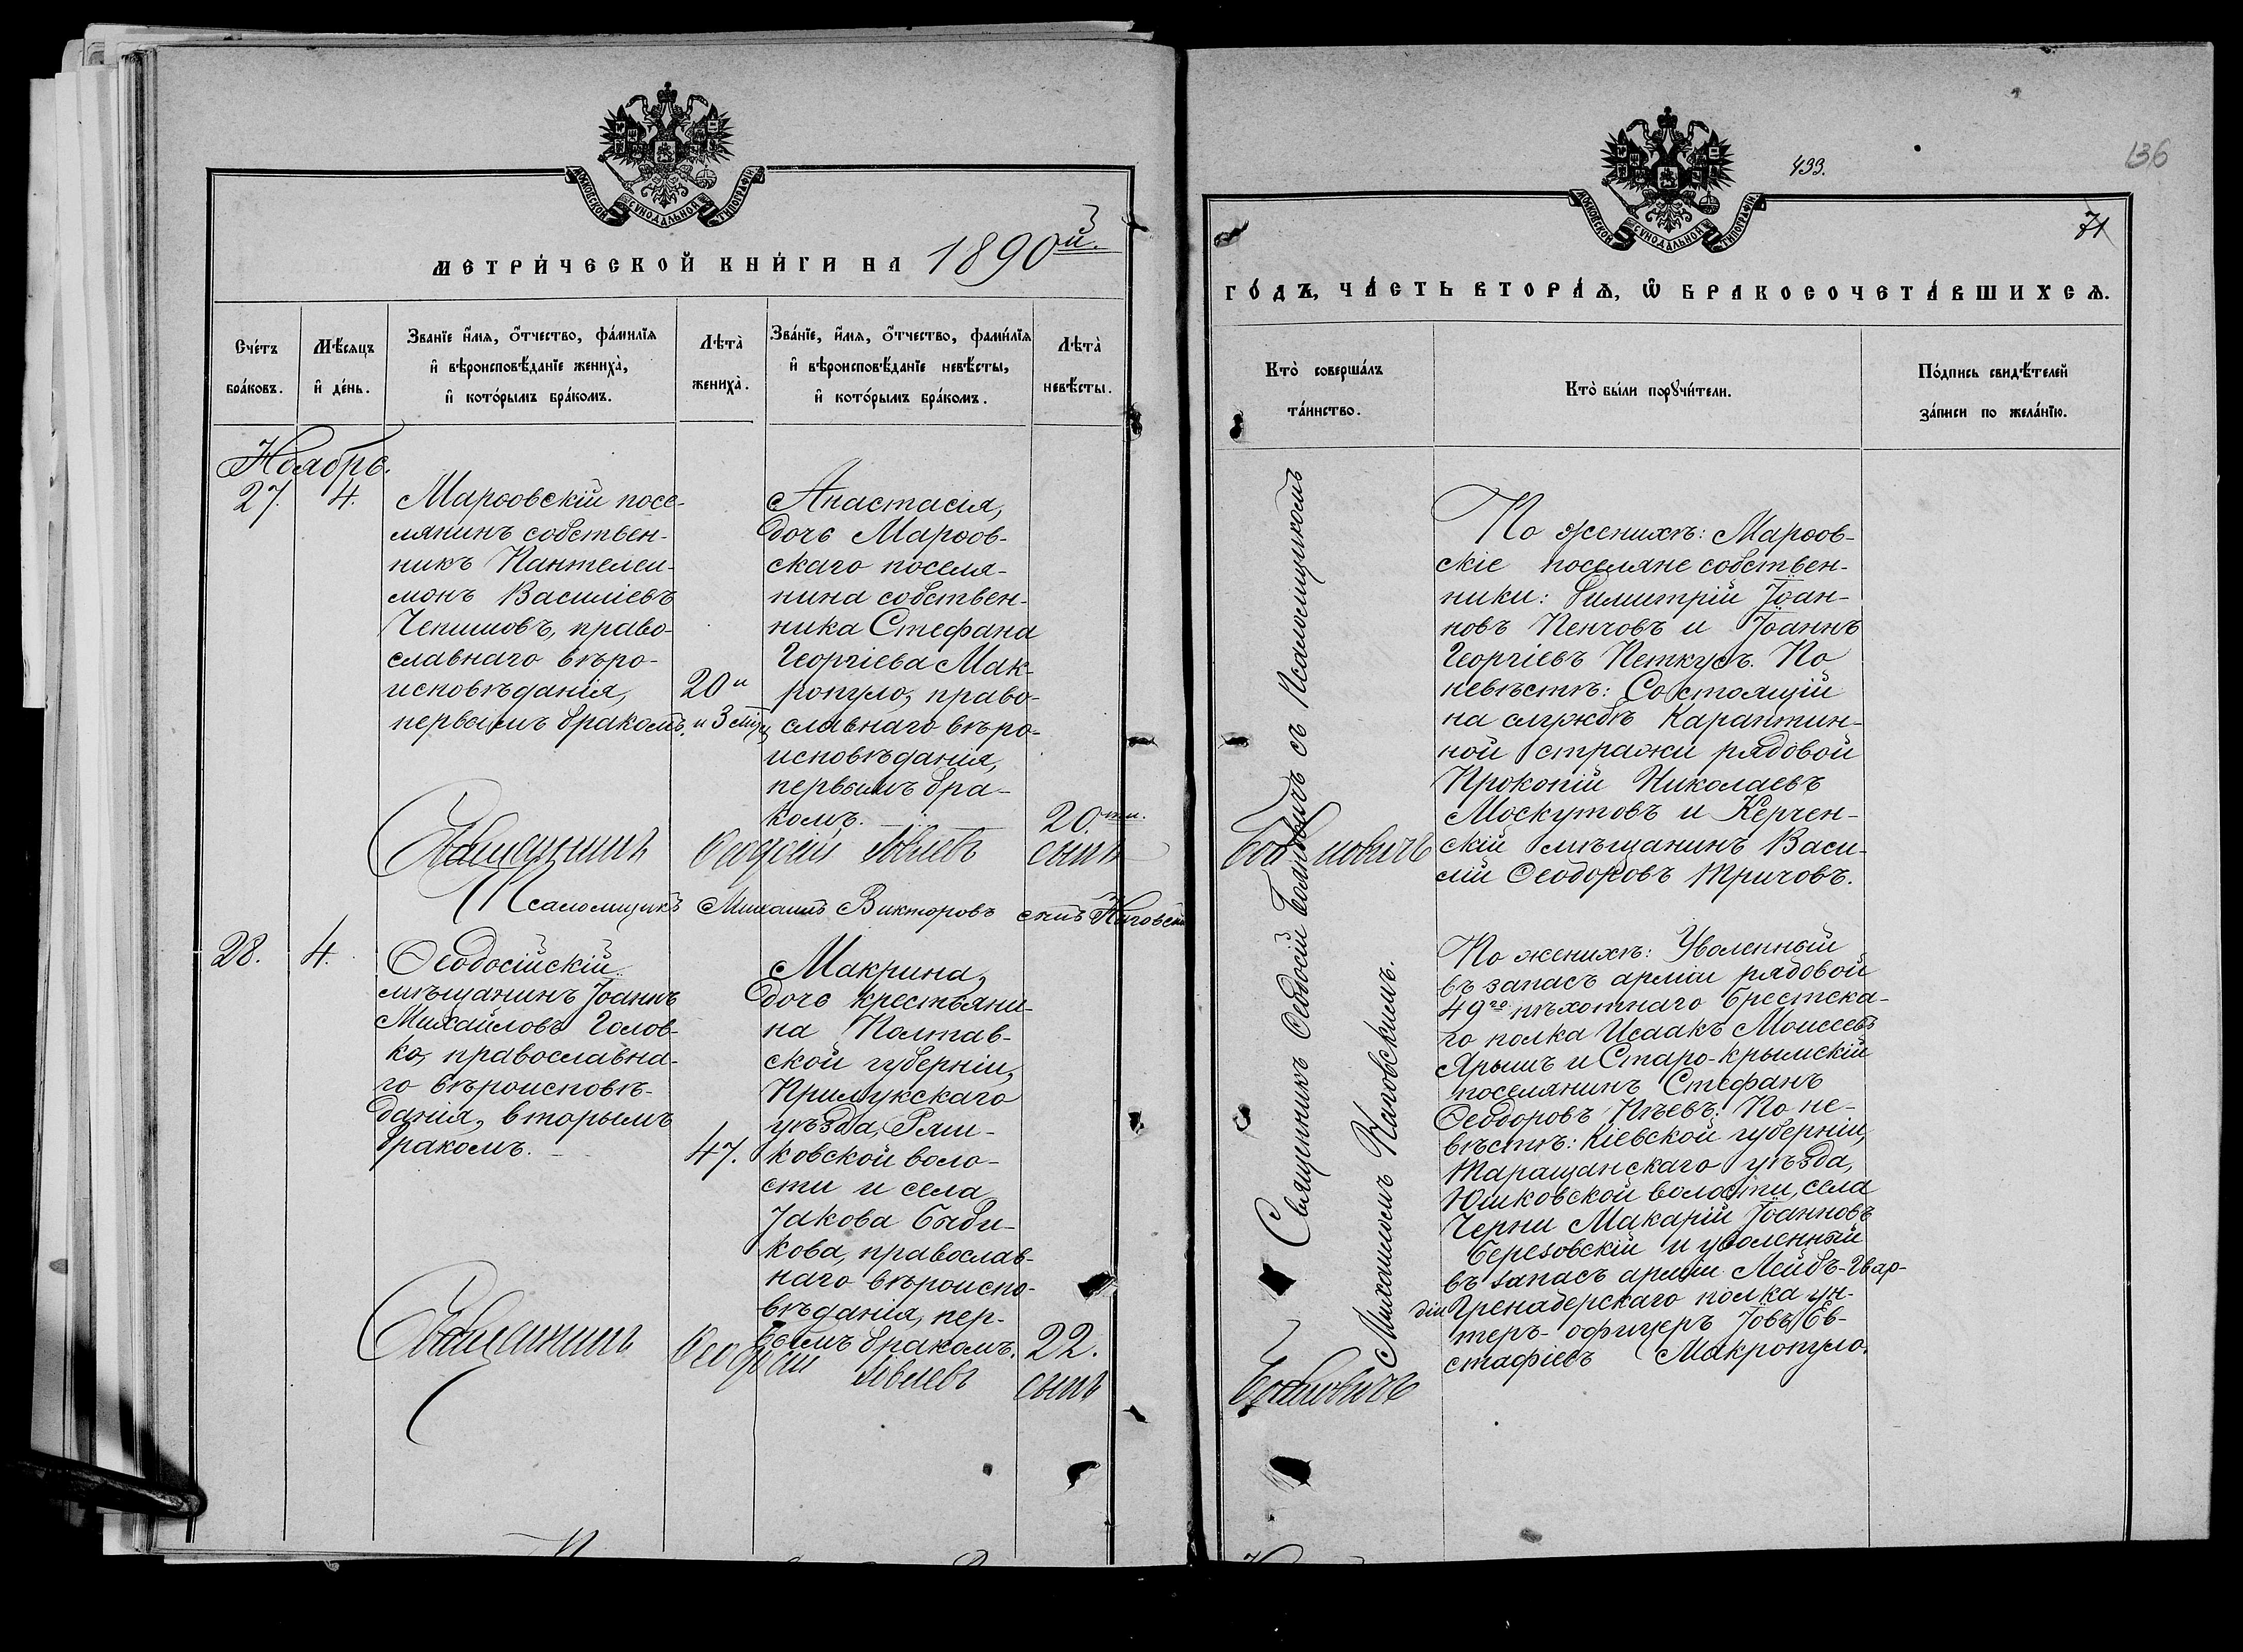 МОСКОВСКОЙ СУНОДАЛЬНОЙ ТИПОГРАФІИ
МЕТРИ́ЧЕСКОЙ КНИ́ГИ НА 1890й.
Сче́тъ бра́ковъ.
Мѣ́сяцъ и҆ де́нь.
Званїе и҆́мя, ѻ҆́тчество, фами́лїя
и҆ вѣроисповѣ́данїе жениха̀,
и҆ кото́рымъ бра́комъ.
Лѣта̀ жениха̀.
Зва́нїе, и҆́мя, ѻ҆́тчество, фами́лїя
и҆ вѣроисповѣ́данїе невѣ́сты,
и҆ кото́рымъ бра́комъ.
Лѣта̀ невѣ́сты.
Ноябрь.
27.
4.
Марѳовскій посе-
лянинъ собствен-
никъ Пантелеи-
монъ Василіевъ
право-
славнаго вѣро-
исповѣданія,
первымъ бракомъ.
20и
и 3
Анастасія,
дочь Марѳов-
скаго поселя-
нина собствен-
ника Стефана
Георгіева Мак-
ропуло, право-
славнаго вѣро-
исповѣданія,
первымъ бра-
комъ.
20.ти.
Священникъ Ѳеодосій Іовлевъ сынъ
Псаломщикъ Михаилъ Викторовъ сынъ
28.
4.
Ѳеодосійскій
мѣщанинъ Іоаннъ
Михайловъ Голов-
ко, православна-
го вѣроисповѣ-
данія, вторымъ
бракомъ.
47.
Макрина,
дочь крестьяни-
на Полтав-
ской губерніи,
Прилукскаго
уѣзда, Ряш-
ковской воло-
сти и села
Іакова Быби-
кова, православ-
наго вѣроиспо-
вѣданія, пер-
вымъ бракомъ.
22.
Священникъ Ѳеодосій Іовлевъ сынъ
433.
136
71
МОСКОВСКОЙ СУНОДАЛЬНОЙ ТИПОГРАФІИ
ГО́ДЪ, ЧА́СТЬ ВТОРА́Ѧ, Ѽ БРАКОСОЧЕТА́ВШИХСѦ.
Кто̀ соверша́лъ
та́инство.
Кто̀ бы́ли порꙋчи́тели.
По́дпись свидѣ́телей
за́писи по жела́нїю.
Священникъ Ѳеодосій Бояновичъ съ Псаломщикомъ
Михаиломъ
Бояновичъ
По женихѣ: Марѳов-
скіе поселяне собствен-
ники: Димитрій Іоан-
новъ Пенчовъ и Іоаннъ
Георгіевъ Петкусъ. По
невѣстѣ: Состоящій
на службѣ Карантин-
ной стражи рядовой
Прокопій Николаевъ
Москутовъ и Керчен-
скій мѣщанинъ Васи-
лій Ѳеодоровъ Тричовъ.
По женихѣ: Уволенный
въ запасъ арміи рядовой
49го пѣхотнаго Брестска-
го полка Исаакъ Моисеевъ
Ярышъ и Старо-крымскій
поселянинъ Стефанъ
Ѳеодоровъ По не-
вѣстѣ: Кіевской губерніи,
Таращанскаго уѣзда,
Юшковской волости, села
Черни Макарій Іоанновъ
Березовскій и уволенный
въ запасъ арміи Лейбъ-Гвар-
діи Гренадерскаго полка ун-
теръ-офицеръ Іовъ Ев-
стафіевъ Макропуло.
Бояновичъ